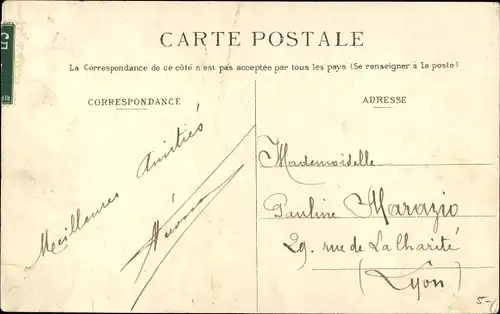 CARTE POSTALE
La Correspondance de ce côté n'est pas acceptée par tous les pays (Se renseigner à la poste)
CORRESPONDANCE
ADRESSE
Meilleures Amitiés
Mademoiselle
Pauline Marazio
29. rue de La Charité
(Lyon)
5-